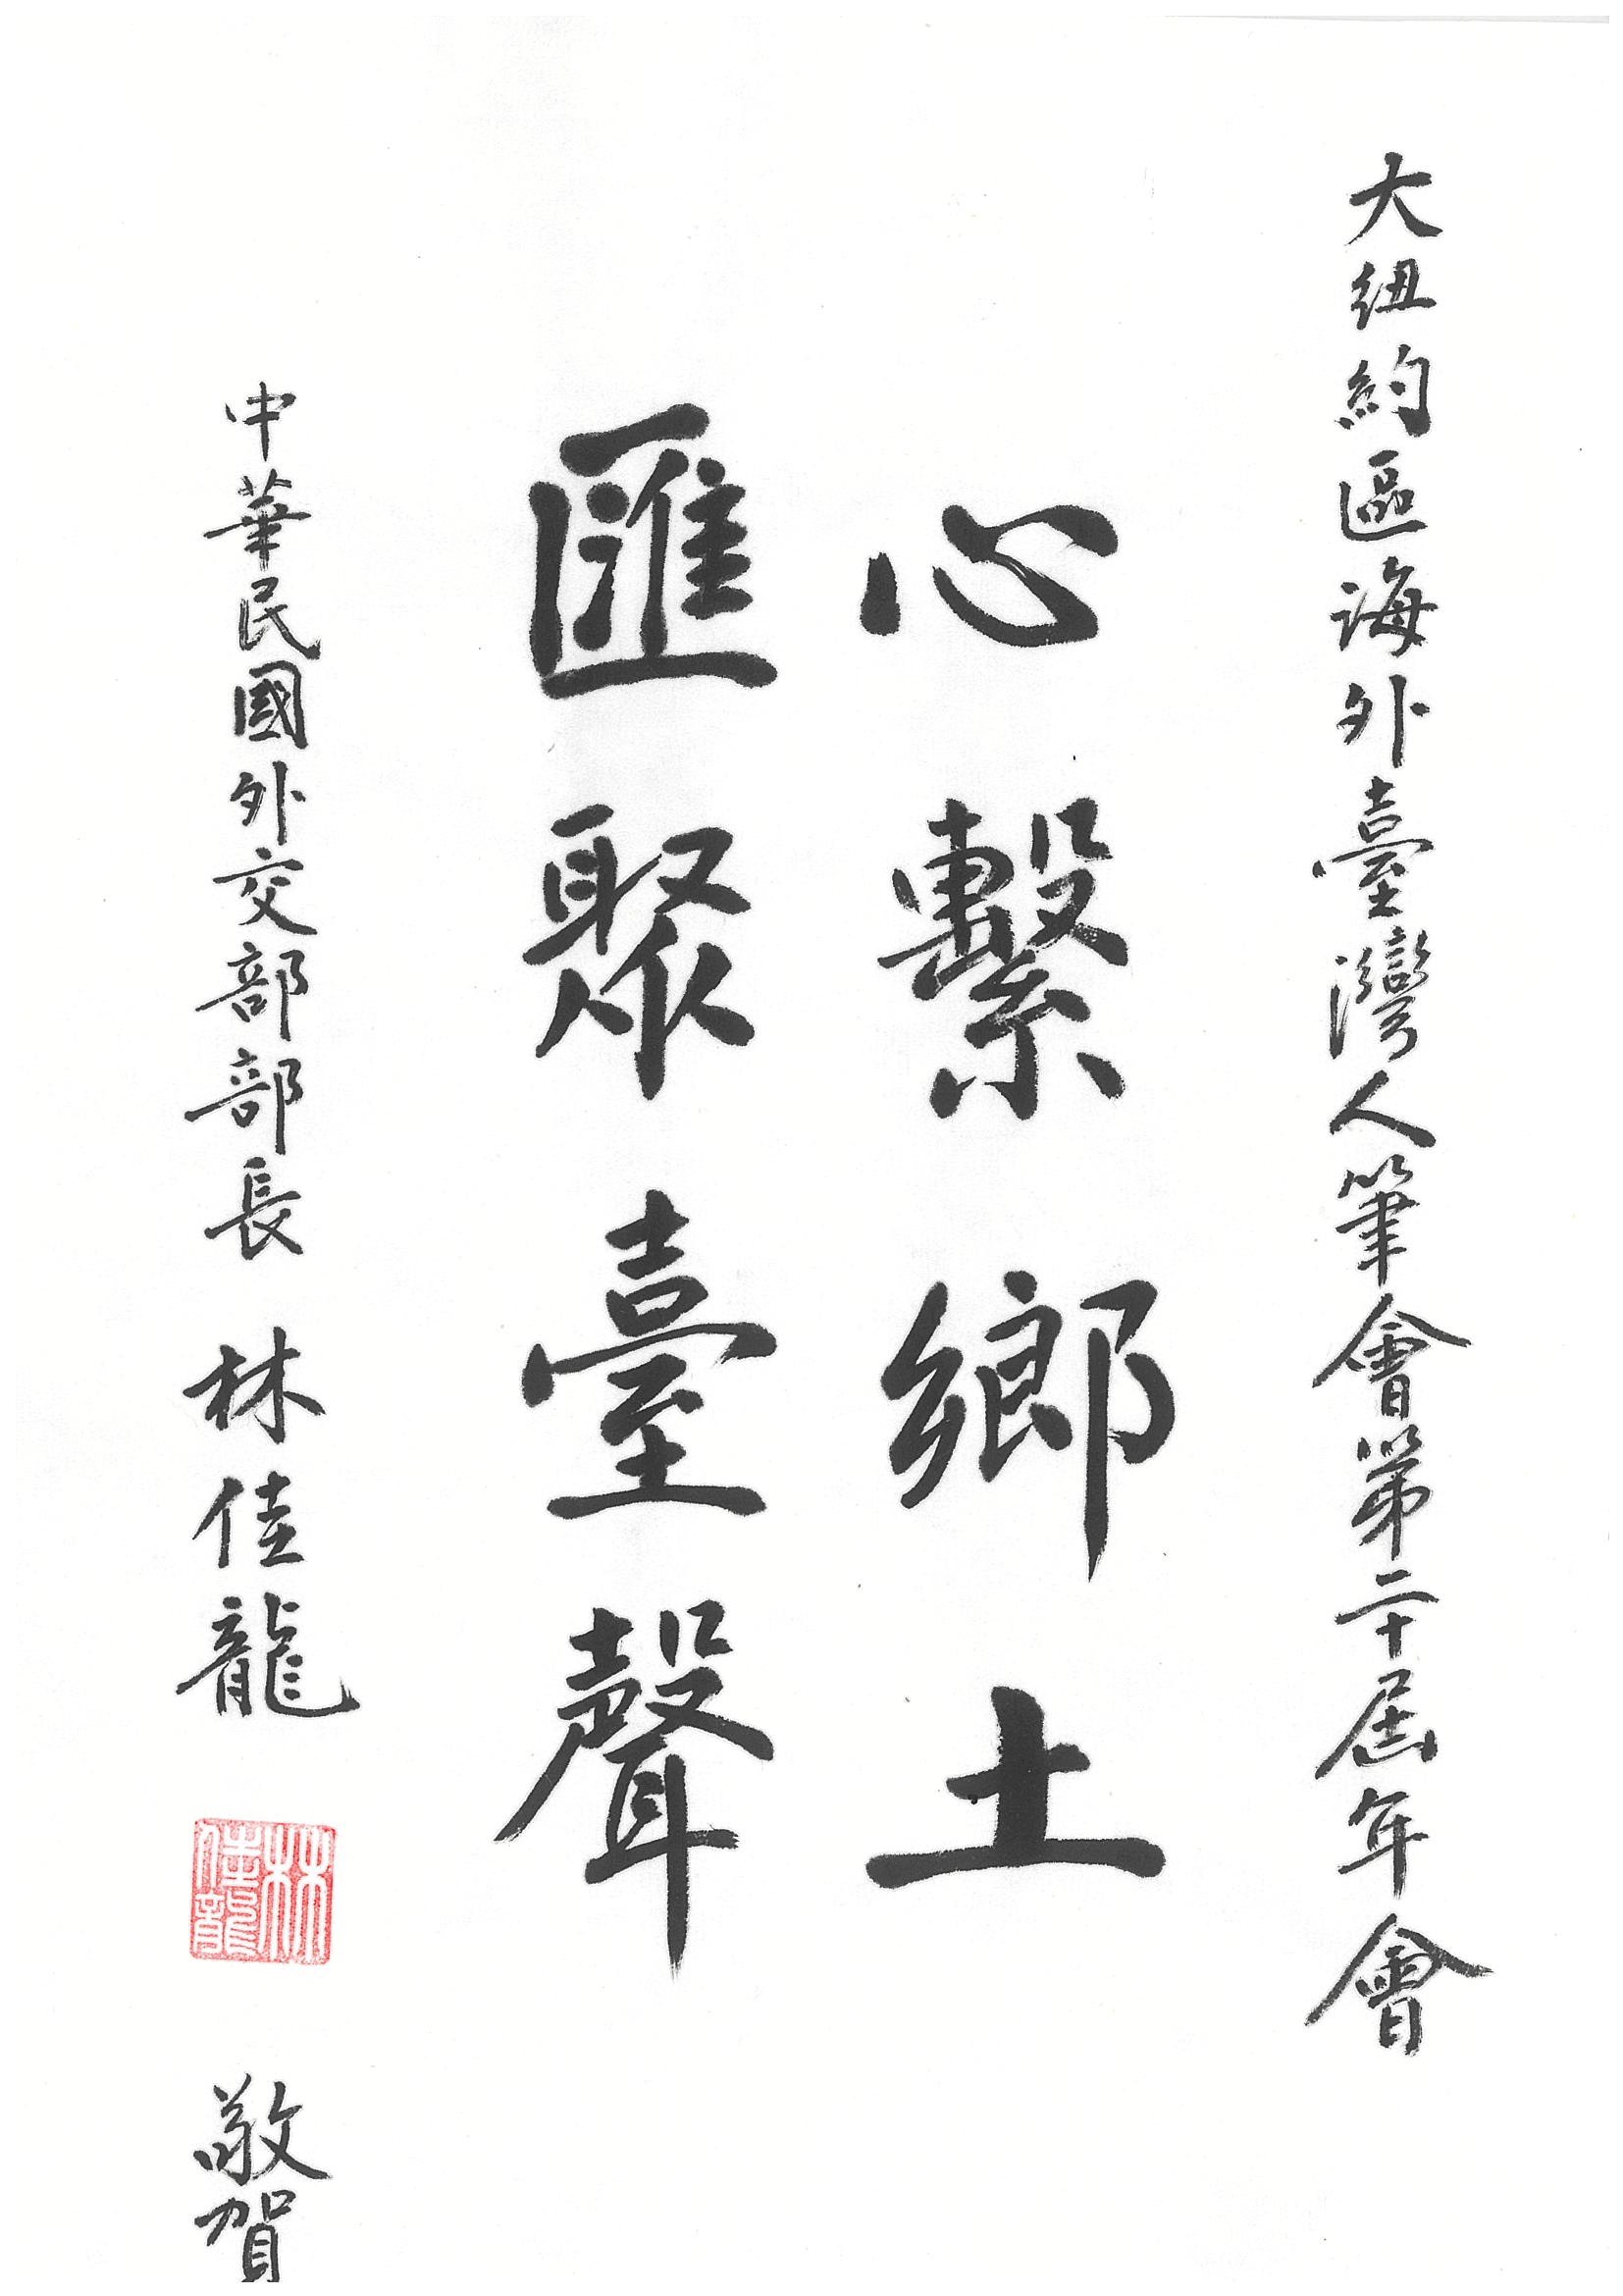 大紐約區海外臺灣人筆會第二十屆年會
心繫鄉土
匯聚臺聲
中華民國外交部部長 林佳龍
林佳龍
敬賀